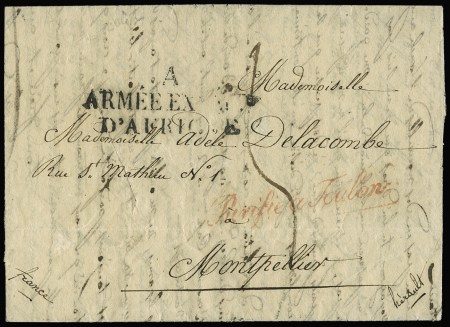 A
ARMÉE EX
D'AFRIQUE
Mademoiselle
Mademoiselle Adèle Delacombe
Rue St Mathieu N.° 1.
Purifié à Toulon
à
Montpellier
france
hérault